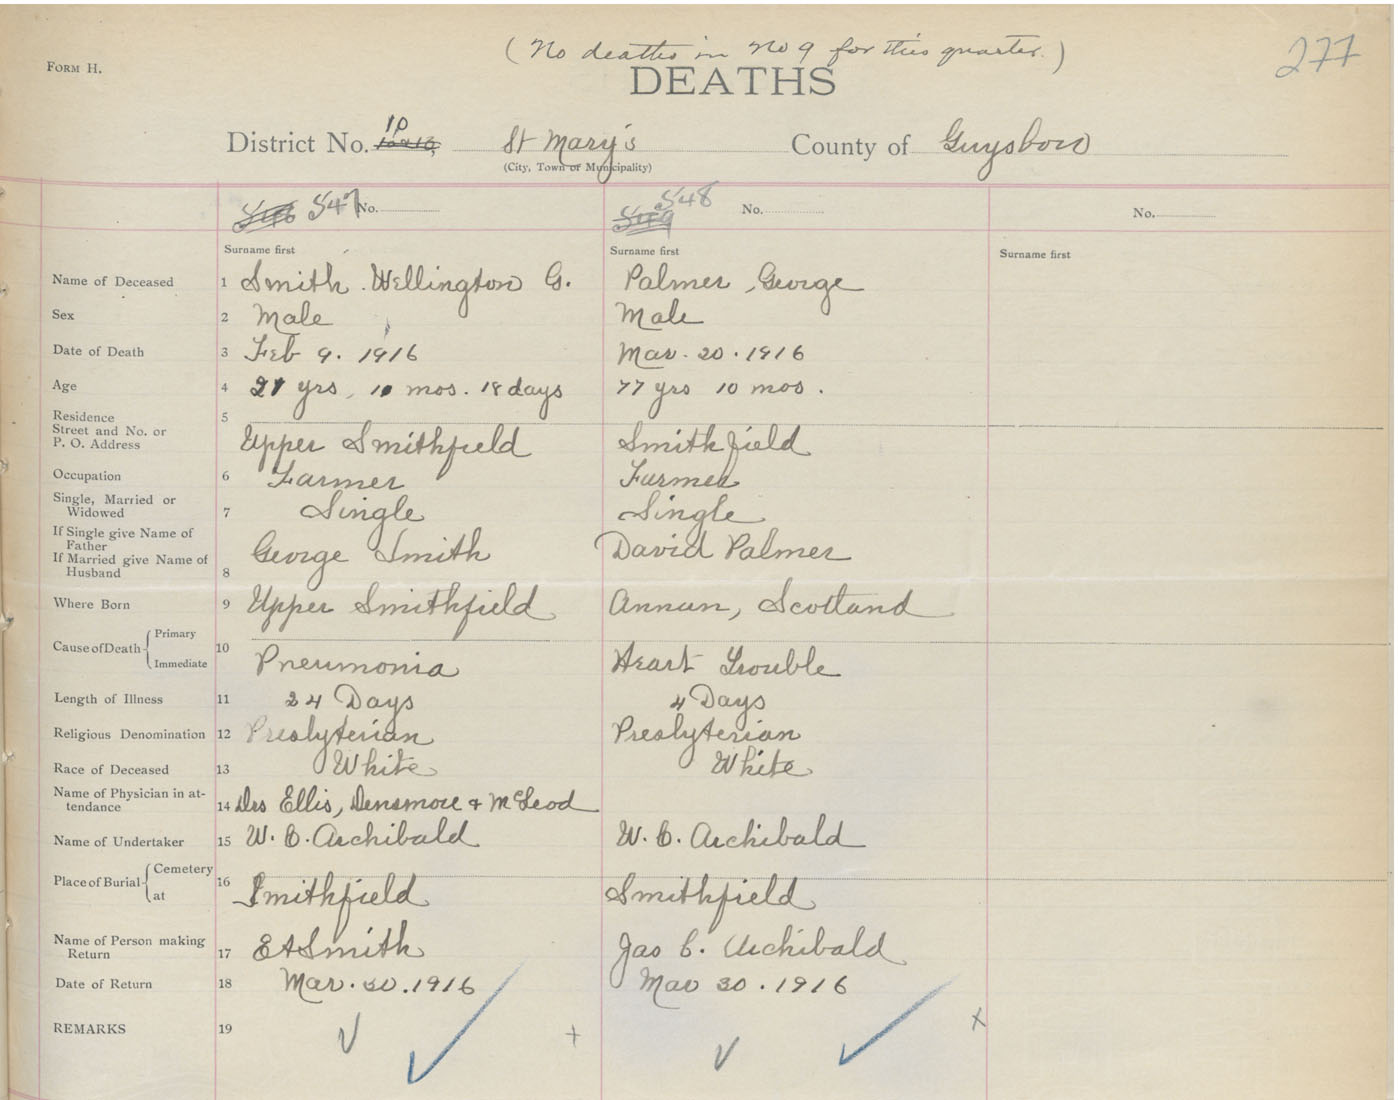 (No deaths in No 9 for this quarter.)
277
FORM H.
DEATHS
District No. 10 St Mary's County of Guysboro
(City, Town or Municipality)
547 No. 548 No. No.
Surname first Surname first Surname first
Name of Deceased 1 Smith Wellington G. Palmer, George
Sex 2 Male Male
Date of Death 3 Feb 9. 1916 Mar. 20. 1916
Age 4 27 yrs, 10 mos. 18 days 77 yrs 10 mos.
Residence
Street and No. or
P. O. Address 5 Upper Smithfield Smithfield
Occupation 6 Farmer Farmer
Single, Married or
Widowed 7 Single Single
If Single give Name of
Father
If Married give Name of
Husband 8 George Smith David Palmer
Where Born 9 Upper Smithfield Annan, Scotland
Cause of Death Primary
Immediate 10 Pneumonia Heart Trouble
Length of Illness 11 24 Days 4 Days
Religious Denomination 12 Presbyterian Presbyterian
Race of Deceased 13 White White
Name of Physician in at-
tendance 14 Drs Ellis, Densmore & McLeod
Name of Undertaker 15 W. C. Archibald W. C. Archibald
Place of Burial Cemetery
at 16 Smithfield Smithfield
Name of Person making
Return 17 EASmith Jas C. Archibald
Date of Return 18 Mar. 30. 1916 Mar 30. 1916
REMARKS 19